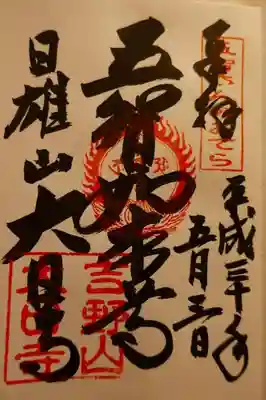 奉拝
平成三十年
五月三日
五智如来尊
日雄山大日寺
吉野山